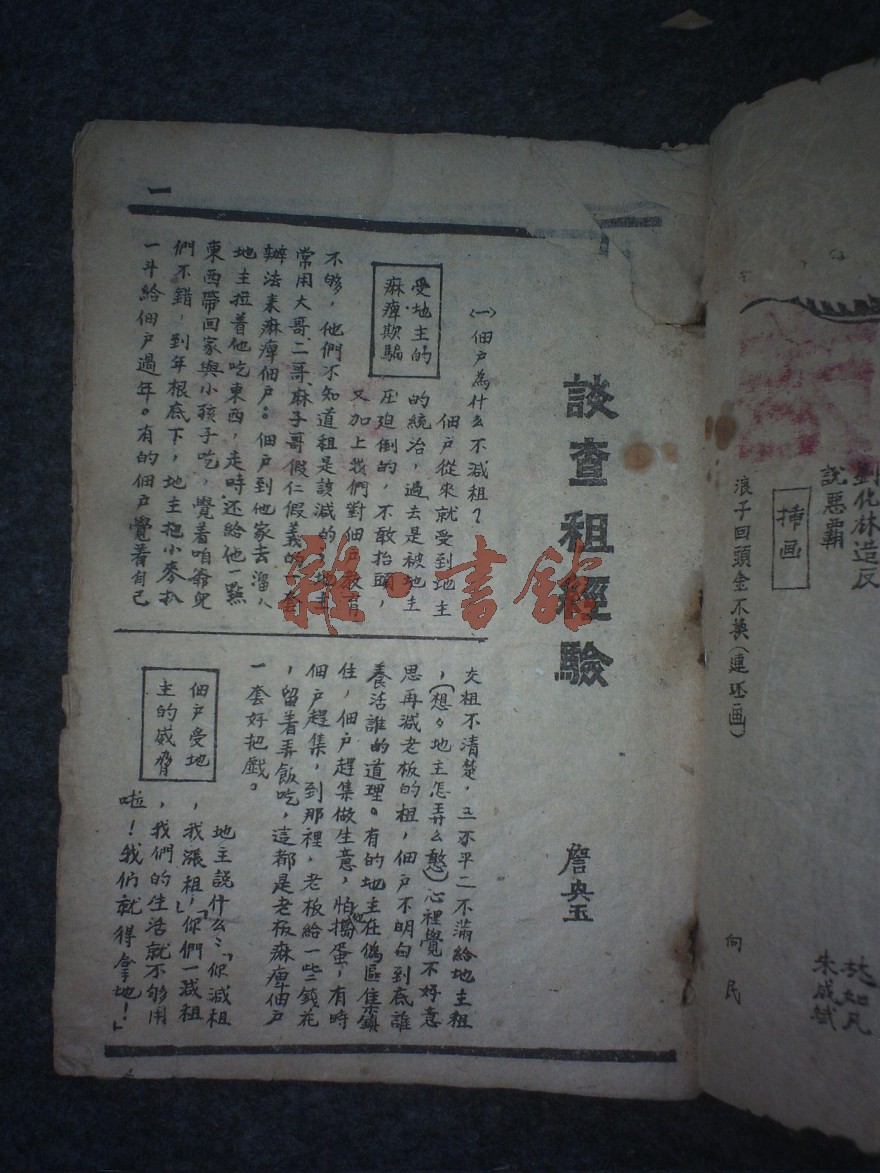 劉化林造反
說惡霸
插画
浪子回頭金不换(連环画)
向民
朱成斌
一
談查租經驗
詹央玉
〈一〉佃戶為什么不減租?
受地主的
麻痺欺騙
佃戶從來就受到地主
的統治,過去是被地主
压迫倒的,不敢抬頭,
又加上我們對佃戶教育
不够,他們不知道租是該減的,地主
常用大哥、二哥、麻子哥假仁假義的一套
辦法来麻痺佃戶:佃戶到他家去溜人
地主拉着他吃東西,走時还給他一點
東西帶回家與小孩子吃,覺着咱爺兒
們不錯,到年根底下,地主把小麥扒
一斗給佃戶過年。有的佃戶覺着自己
交租不清楚,三不平二不滿給地主租
,(想:地主怎弄么憨)心裡覺不好意
思再減老板的租,佃戶不明白到底誰
養活誰的道理。有的地主在偽區住集鎮
住,佃戶趕集做生意,怕他搗蛋,有時
佃戶趕集,到那裡,老板給一些錢花
,留着弄飯吃,這都是老板麻痺佃戶
一套好把戲。
佃戶受地
主的威脅
地主說什么:「你減租
,我漲租」,「你們一減租
,我們的生活就不够用
啦!我們就得拿地!」
雜·書館